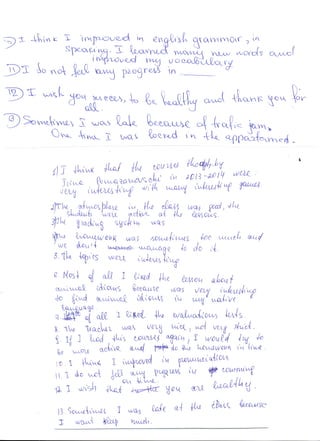 10) I think I improved in english grammar, in
speaking. I learned many new words and
improved my vocabulary
11) I do not feel any progress in
12) I wish you success, to be healthy and thank you for
all.
9) Sometimes I was late because of trafic jam.
One time I was locked in the appartament.
1) I think that the courses by
Irina in 2013-2014 were
very interesting with many interesting games
2) The atmosphere in the class was good, the
students were active at the lessons.
3) The grading system was
4) The homework was sometimes too much and
we don't manage to do it.
5. The topics were interesting
6. Most of all I liked the lesson about
animal idioms because was very interesting
to find animal idioms in my native
language
7. of all I liked the evaluations tests.
8. The teacher was very nice, not very strict.
9 If I had this courses again, I would try to
be more active and to do the homework in time.
10. I think I improved in pronunciation
11. I do not fell any progress in
on time.
12. I wish that you are healthy.
13 Sometimes I was late at the class because
I want sleep much.